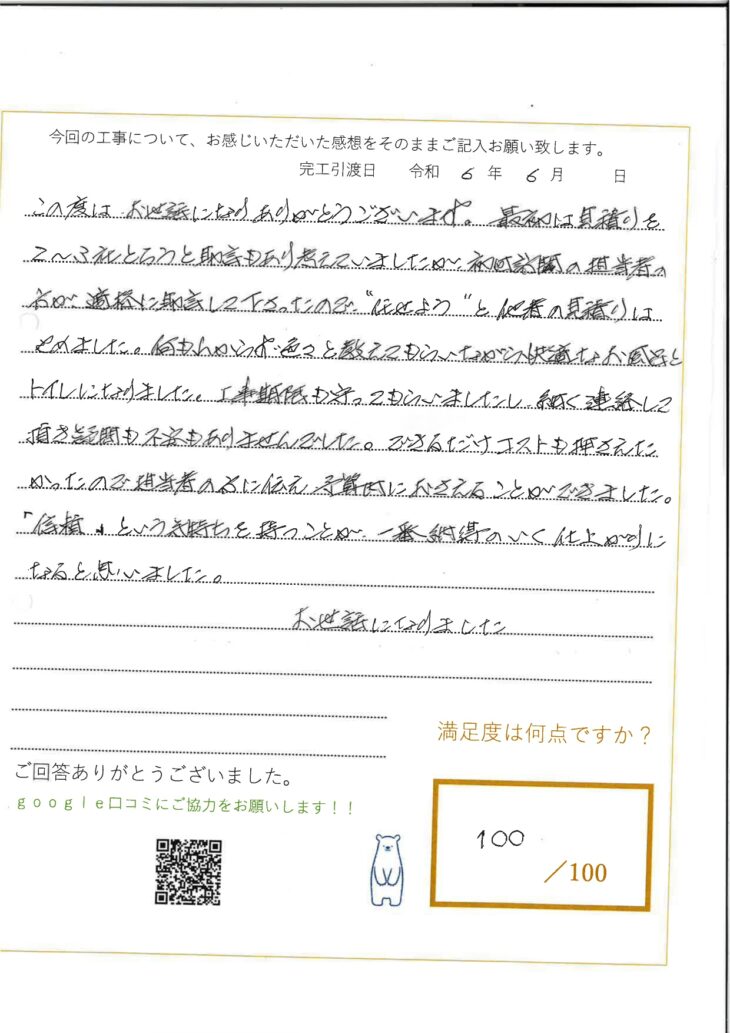 今回の工事について、お感じいただいた感想をそのままご記入お願い致します。
完工引渡日 令和 6 年 6 月 日
この度は お世話になりありがとうございます。最初は見積りを
2〜3社とろうと助言もあり考えていましたが、初回訪問の担当者の
方が、適格に助言して下さったので、"任せよう"と他者の見積りは
やめました。何もわからず色々と教えてもらいながら快適なお風呂と
トイレになりました。工事期限も守ってもらいましたし、細く連絡して
頂き疑問も不安もありませんでした。できるだけコストも押さえた
かったので担当者の方に伝え予算内におさえることができました。
「信頼」という気持ちを持つことが、一番納得のいく仕上がりに
なると思いました。
お世話になりました
満足度は何点ですか？
ご回答ありがとうございました。
google口コミにご協力をお願いします！！
100
／100